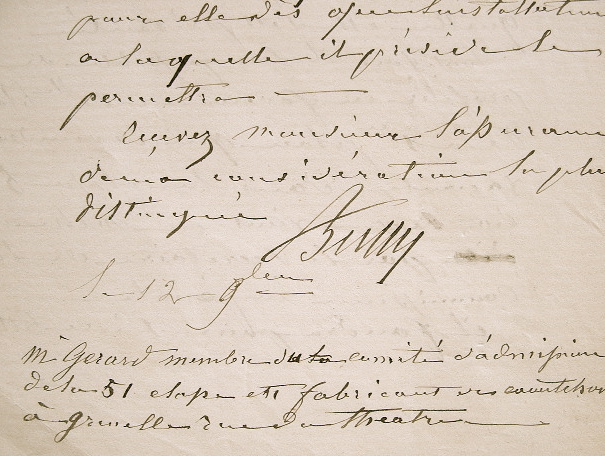 pour elle dès que l'installation
a laquelle il préside le
permettra
recevez monsieur l'assurance
de ma considération la plus
distingué
le 12 9bre
Mr Gerard membre du comité d'admission
de la 51 classe est fabricant en caoutchouc
à grenelle rue du théatre